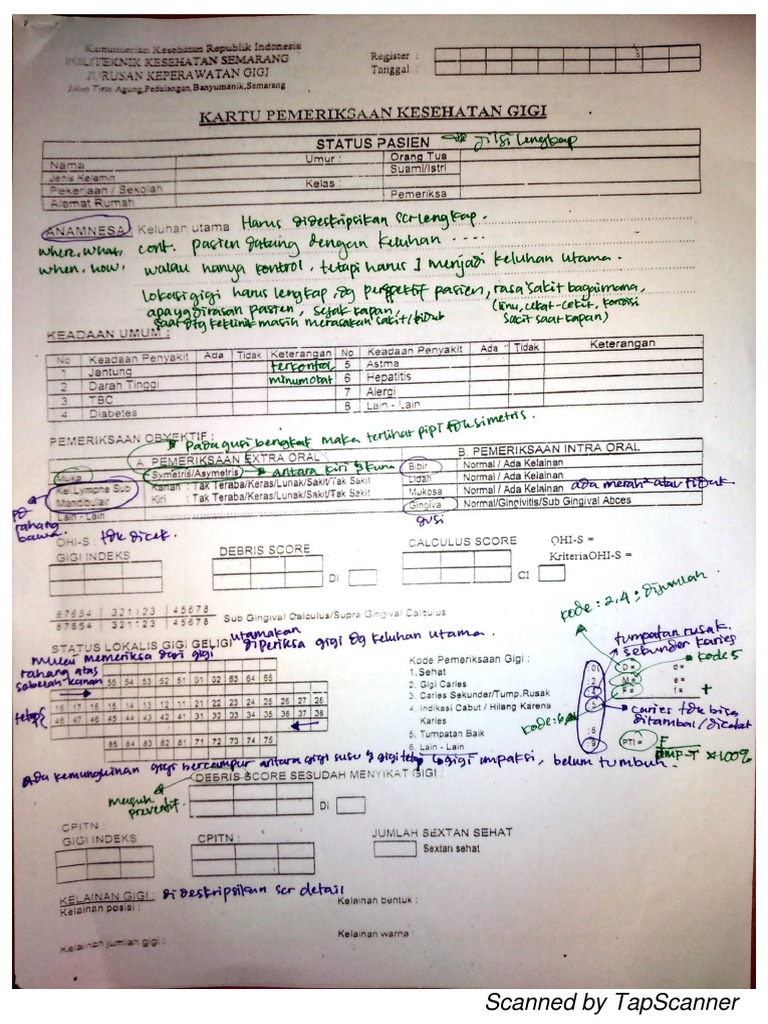 Kementerian Kesehatan Republik Indonesia
POLITEKNIK KESEHATAN SEMARANG
JURUSAN KEPERAWATAN GIGI
Jalan Tirto Agung,Pedalangan,Banyumanik,Semarang
Register :
Tanggal :
KARTU PEMERIKSAAN KESEHATAN GIGI
STATUS PASIEN diisi lengkap
Nama Umur : Orang Tua
Jenis Kelamin Suami/Istri
Pekerjaan / Sekolah Kelas :
Alamat Rumah Pemeriksa
ANAMNESA : Keluhan utama Harus dideskripsikan scr lengkap.
where, what, cont. pasien datang dengan keluhan ....
when, how, walau hanya kontrol, tetapi harus 1 menjadi keluhan utama.
lokasi gigi harus lengkap, dg perspektif pasien, rasa sakit bagaimana,
apa yg dirasan pasien, sejak kapan, (linu, cekat-cekit, kondisi
saat dtg ke klinik masih merasakan sakit/tidak sakit saat kapan)
KEADAAN UMUM :
No Keadaan Penyakit Ada Tidak Keterangan No Keadaan Penyakit Ada Tidak Keterangan
1 Jantung terkontrol 5 Astma
2 Darah Tinggi minum obat 6 Hepatitis
3 TBC 7 Alergi
4 Diabetes 8 Lain - Lain
PEMERIKSAAN OBYEKTIF : pada gusi bengkak maka terlihat pipi tdk simetris.
A. PEMERIKSAAN EXTRA ORAL B. PEMERIKSAAN INTRA ORAL
Muka Symetris/Asymetris antara kiri & kanan Bibir Normal / Ada Kelainan
Kel.Lymphe Sub Kanan : Tak Teraba/Keras/Lunak/Sakit/Tak Sakit Lidah Normal / Ada Kelainan
Mandibular Kiri : Tak Teraba/Keras/Lunak/Sakit/Tak Sakit Mukosa Normal / Ada Kelainan ada merah² atau tidak
Lain - Lain Gingiva Normal/Gingivitis/Sub Gingival Abces
pd rahang bawah.
gusi
OHI-S : tdk dicek.
GIGI INDEKS DEBRIS SCORE CALCULUS SCORE OHI-S =
KriteriaOHI-S =
DI CI
87654 321123 45678
87654 321123 45678 Sub Gingival Calculus/Supra Gingival Calculus
kode : 2,4 ; dijumlah
STATUS LOKALIS GIGI GELIGI utamakan diperiksa gigi dg keluhan utama.
mulai memeriksa dari gigi rahang atas sebelah kanan
55 54 53 52 51 61 62 63 64 65
18 17 16 15 14 13 12 11 21 22 23 24 25 26 27 28
tetap
48 47 46 45 44 43 42 41 31 32 33 34 35 36 37 38
85 84 83 82 81 71 72 73 74 75
Kode Pemeriksaan Gigi :
1. Sehat
2. Gigi Caries
3. Caries Sekunder/Tump.Rusak
4. Indikasi Cabut / Hilang Karena
Karies
5. Tumpatan Baik
6. Lain - Lain
tumpatan rusak.
sekunder karies
kode 5
D = d=
M= e=
F= f= +
caries tdk bisa
ditambal / dicabut
PTI = F
DMF-T x100%
gigi impaksi, belum tumbuh.
Ada kemungkinan gigi bercampur antara gigi susu & gigi tetap
DEBRIS SCORE SESUDAH MENYIKAT GIGI :
masuk preventif.
Di
CPITN :
GIGI INDEKS CPITN : JUMLAH SEXTAN SEHAT
Sextan sehat
KELAINAN GIGI : dideskripsikan scr detail
Kelainan posisi : Kelainan bentuk :
Kelainan jumlah gigi : Kelainan warna :
Scanned by TapScanner